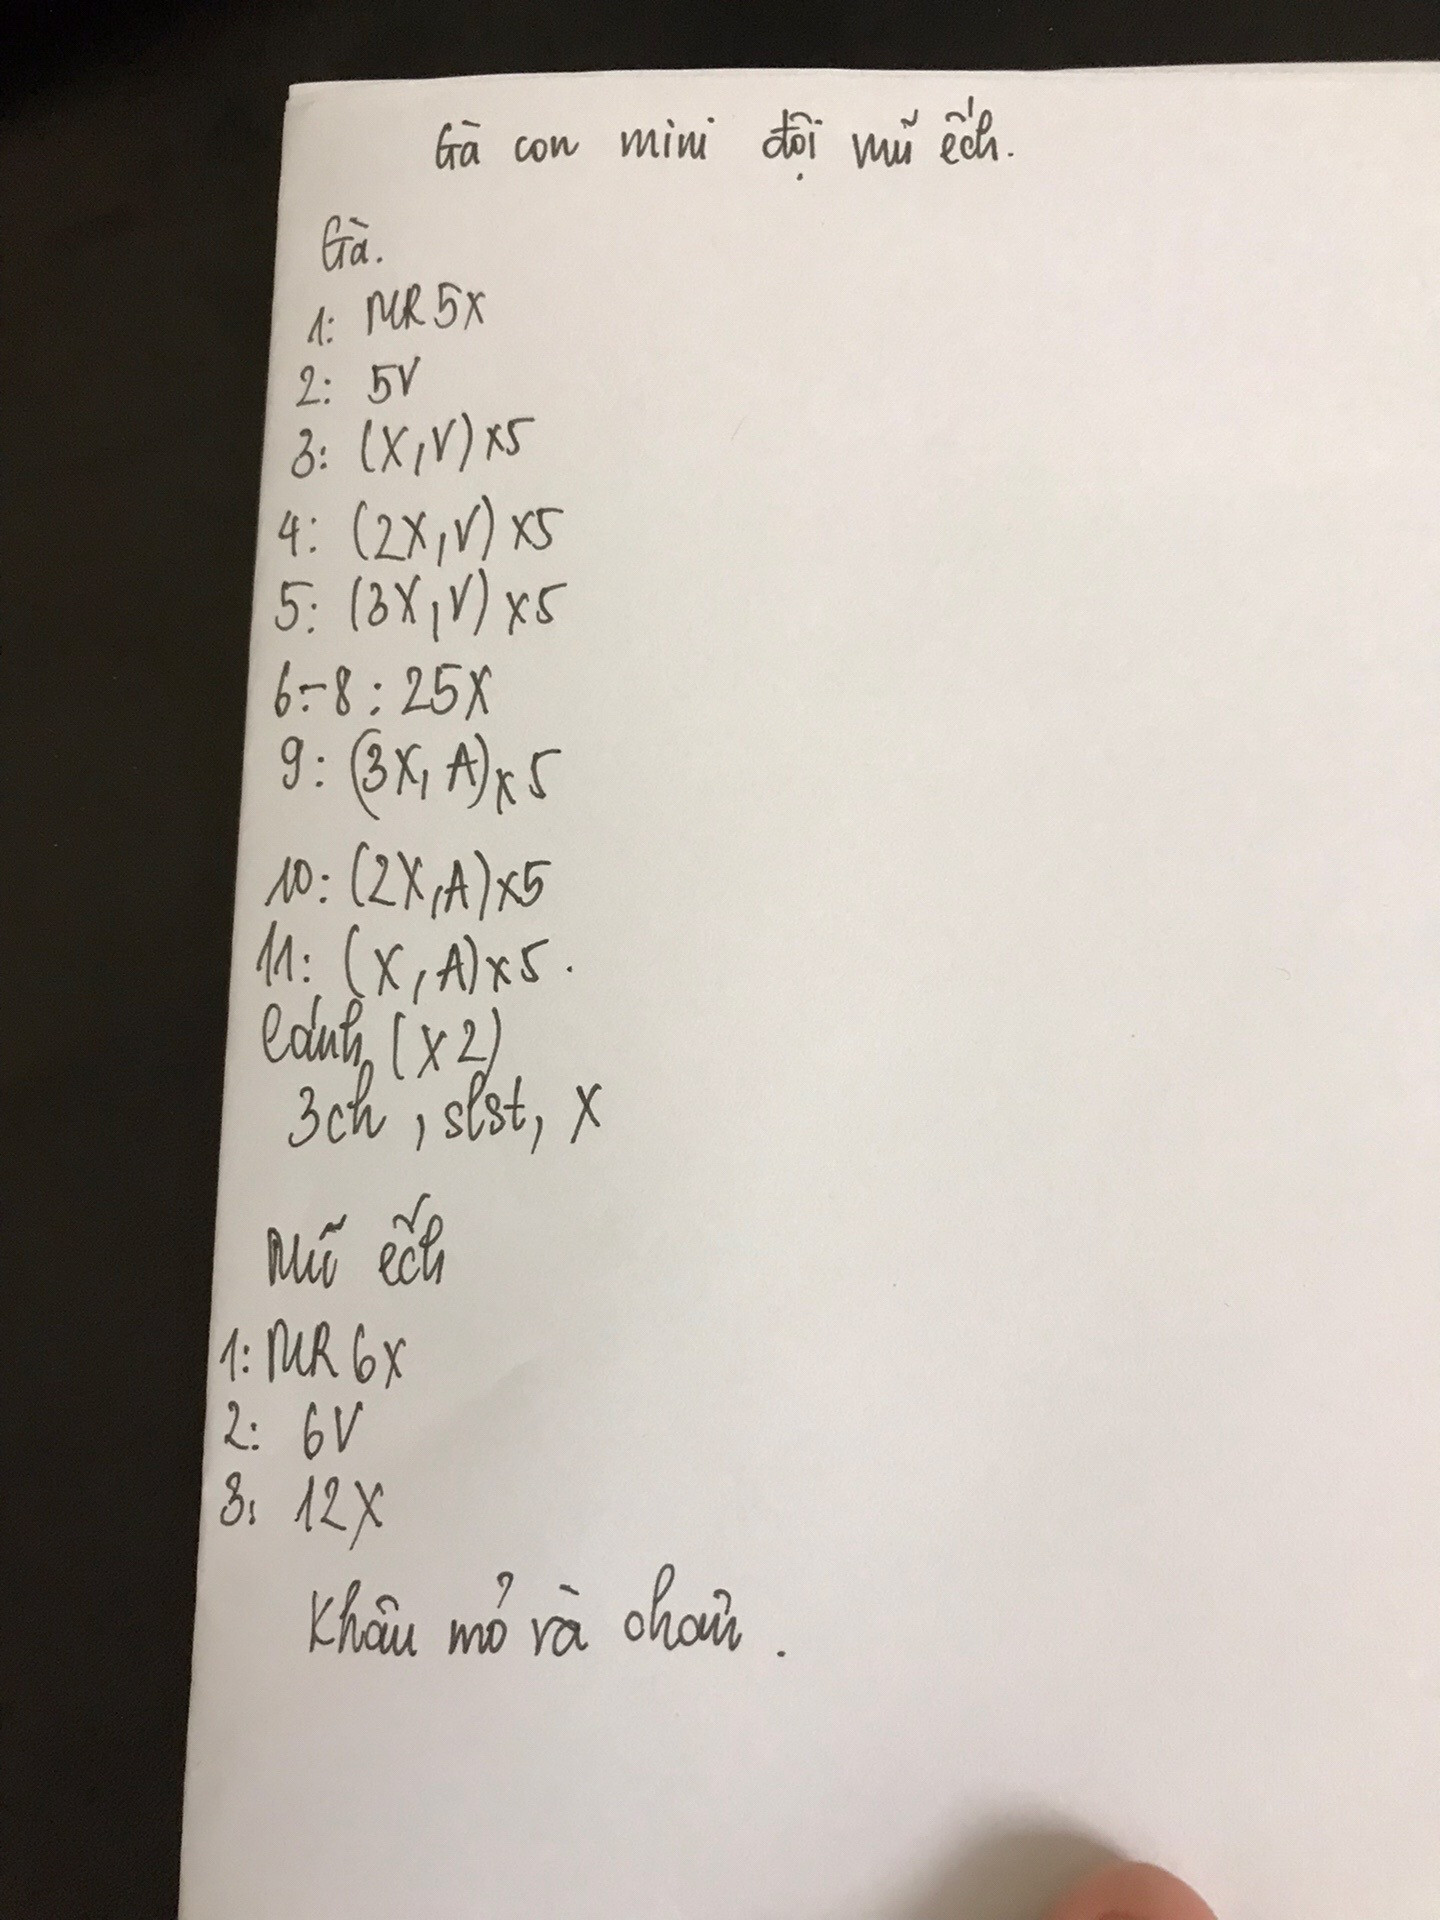 Gà con mini đội mũ ếch.
Gà.
1: MR 5X
2: 5V
3: (X, V) x5
4: (2X, V) x5
5: (3X, V) x5
6-8: 25X
9: (3X, A) x5
10: (2X, A) x5
11: (X, A) x5.
Cánh (x2)
3ch, slst, X
Mũ ếch
1: MR 6X
2: 6V
3: 12X
Khâu mỏ và chân.